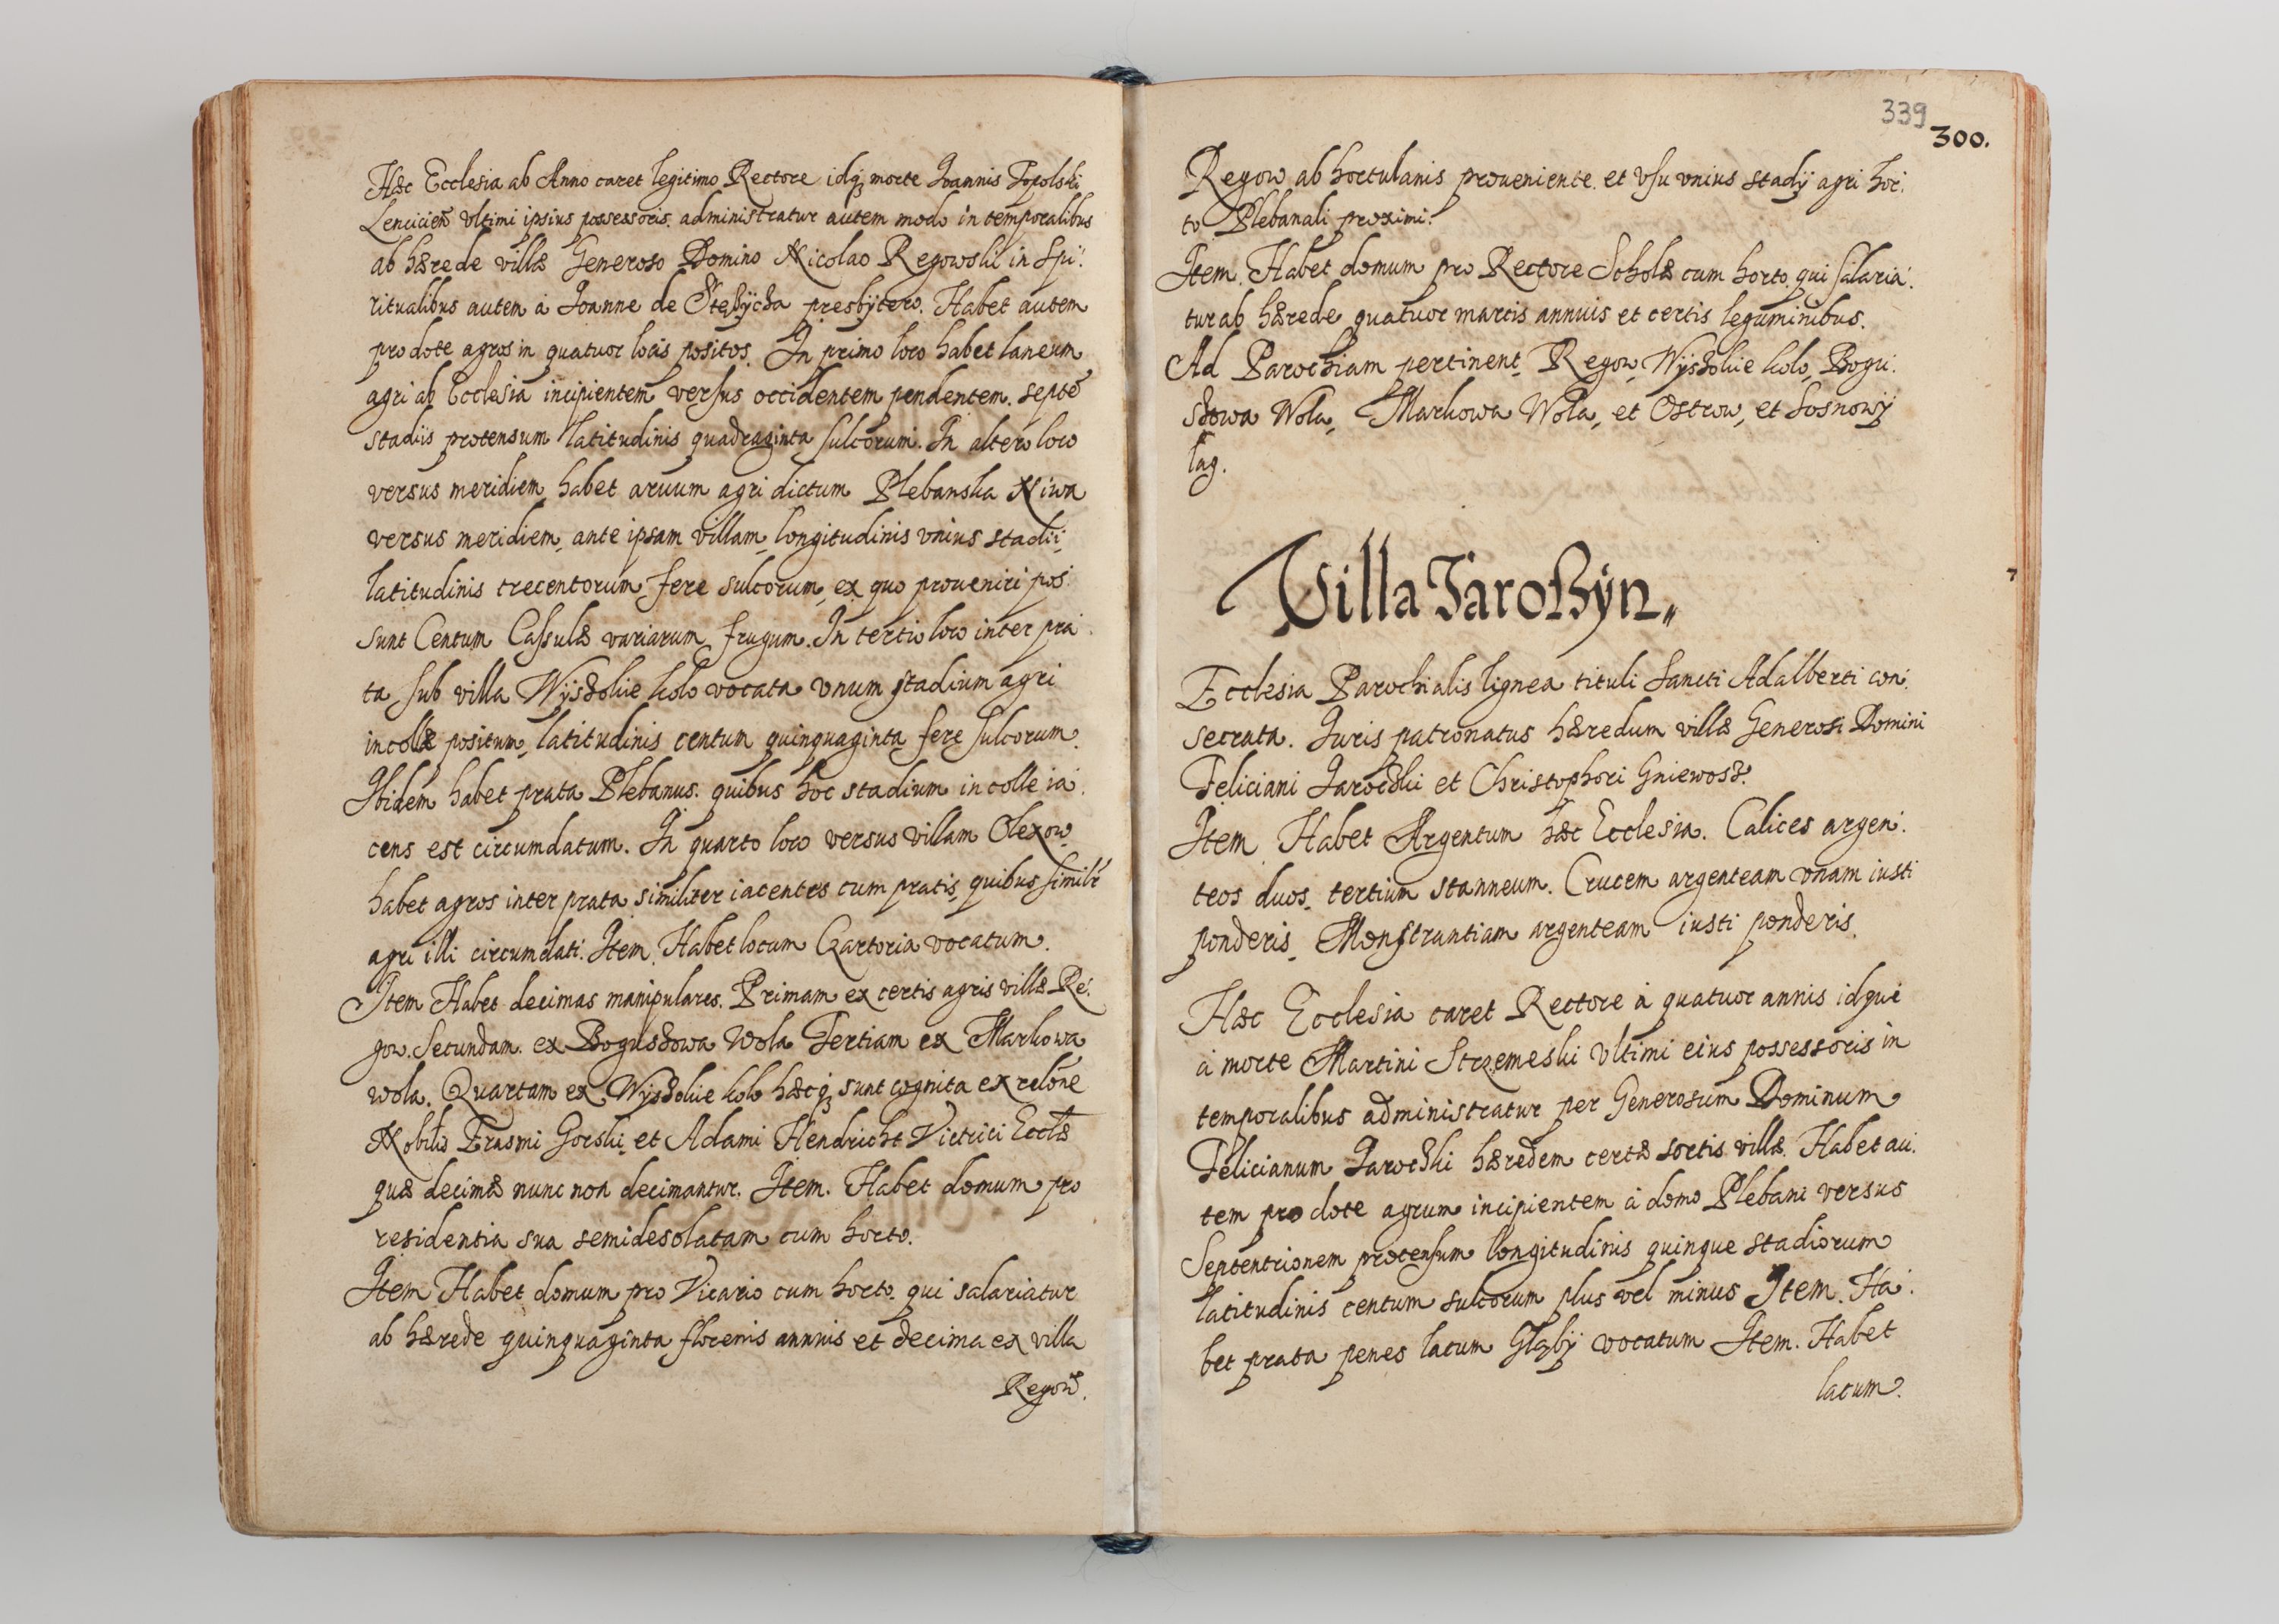 Hæc Ecclesia ab Anno caret legitimo Rectore idq; morte Joannis Topolski
Lencicieñ vltimi ipsius possessoris. administratur autem modo in temporalibus
ab hærede villæ Generoso Domino Nicolao Regowski in Spi:
ritualibus autem à Joanne de presbytero. Habet autem
pro dote agros in quatuor locis positos. In primo loco habet laneum
agri ab Ecclesia incipientem versus occidentem pendentem. septẽ
stadiis protensum latitudinis quadraginta sulcorum. In altero loco
versus meridiem habet aruum agri dictum Plebanska Niwa
versus meridiem, ante ipsam villam, longitudinis vnius stadii,
latitudinis trecentorum fere sulcorum, ex quo proueniri pos:
sunt Centum Cassulæ variarum frugum. In tertio loco inter pra:
ta sub villa Wyszokie kolo vocata vnum stadium agri
in colle positum, latitudinis centum quinquaginta fere sulcorum.
Ibidem habet prata Plebanus. quibus hoc stadium in colle ia:
cens est circumdatum. In quarto loco versus villam Olexow
habet agros inter prata similiter iacentes cum pratis, quibus similr̃
agri illi circumdati. Item. Habet locum Czartoria vocatum.
Item Habet decimas manipulares. Primam ex certis agris villæ Re:
gow. Secundam. ex Boguszowa Wola Tertiam ex Markowa
wola. Quartam ex Wyszokie kolo hæcq; sunt cognita ex relõne
Nobiliũ Erasmi Gorski, et Adami Hendricht Victrici Eccłæ
quæ decimæ nunc non decimantur. Item. Habet domum pro
residentia sua semidesolatam cum horto.
Item Habet domum pro Vicario cum horto. qui salariatur
ab hærede quinquaginta florenis annuis et decima ex villa
Regow.
339
300.
Regow ab hortulanis proueniente. et vsu vnius stadij agri hor:
to Plebanali proximi.
Item. Habet domum pro Rectore Scholæ cum horto. qui salaria:
tur ab hærede quatuor marcis annuis et certis leguminibus.
Ad Parochiam pertinent, Regow, Wyszokie kolo, Bogu:
szowa Wola, Markowa Wola, et Ostrow, et Sosnowy
lag.
Villa Jaroszyn
Ecclesia Parochialis lignea tituli Sancti Adalberti con:
secrata. Juris patronatus hæredum villæ Generosi Domini
Feliciani Jaroczki et Christophori Gniewosz.
Item. Habet Argentum hæc Ecclesia. Calices argen:
teos duos, tertium stanneum. Crucem argenteam vnam iusti
ponderis, Monstrantiam argenteam iusti ponderis.
Hæc Ecclesia caret Rectore à quatuor annis idque
à morte Martini Strzemeski vltimi eius possessoris in
temporalibus administratur per Generosum Dominum
Felicianum Jaroczki hæredem certæ sortis villæ. Habet au:
tem pro dote agrum incipientem à domo Plebani versus
Septentrionem protensum longitudinis quinque stadiorum
latitudinis centum sulcorum plus vel minus Item. Ha:
bet prata penes lacum Głęby vocatum Item. Habet
lacum.